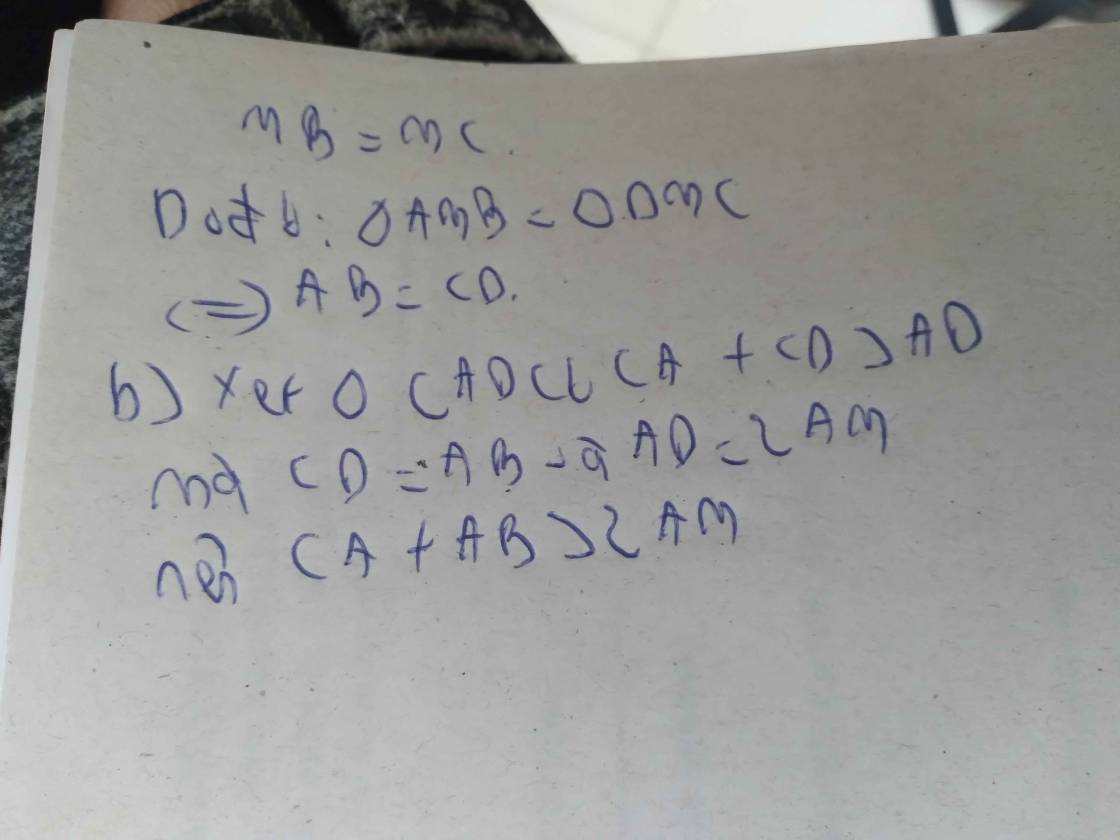 MB = MC.
Do đó: ΔAMB = ΔDMC
(=) AB = CD.
b) Xét Δ CAD có CA + CD > AD
mà CD = AB và AD = 2AM
nên CA + AB > 2AM